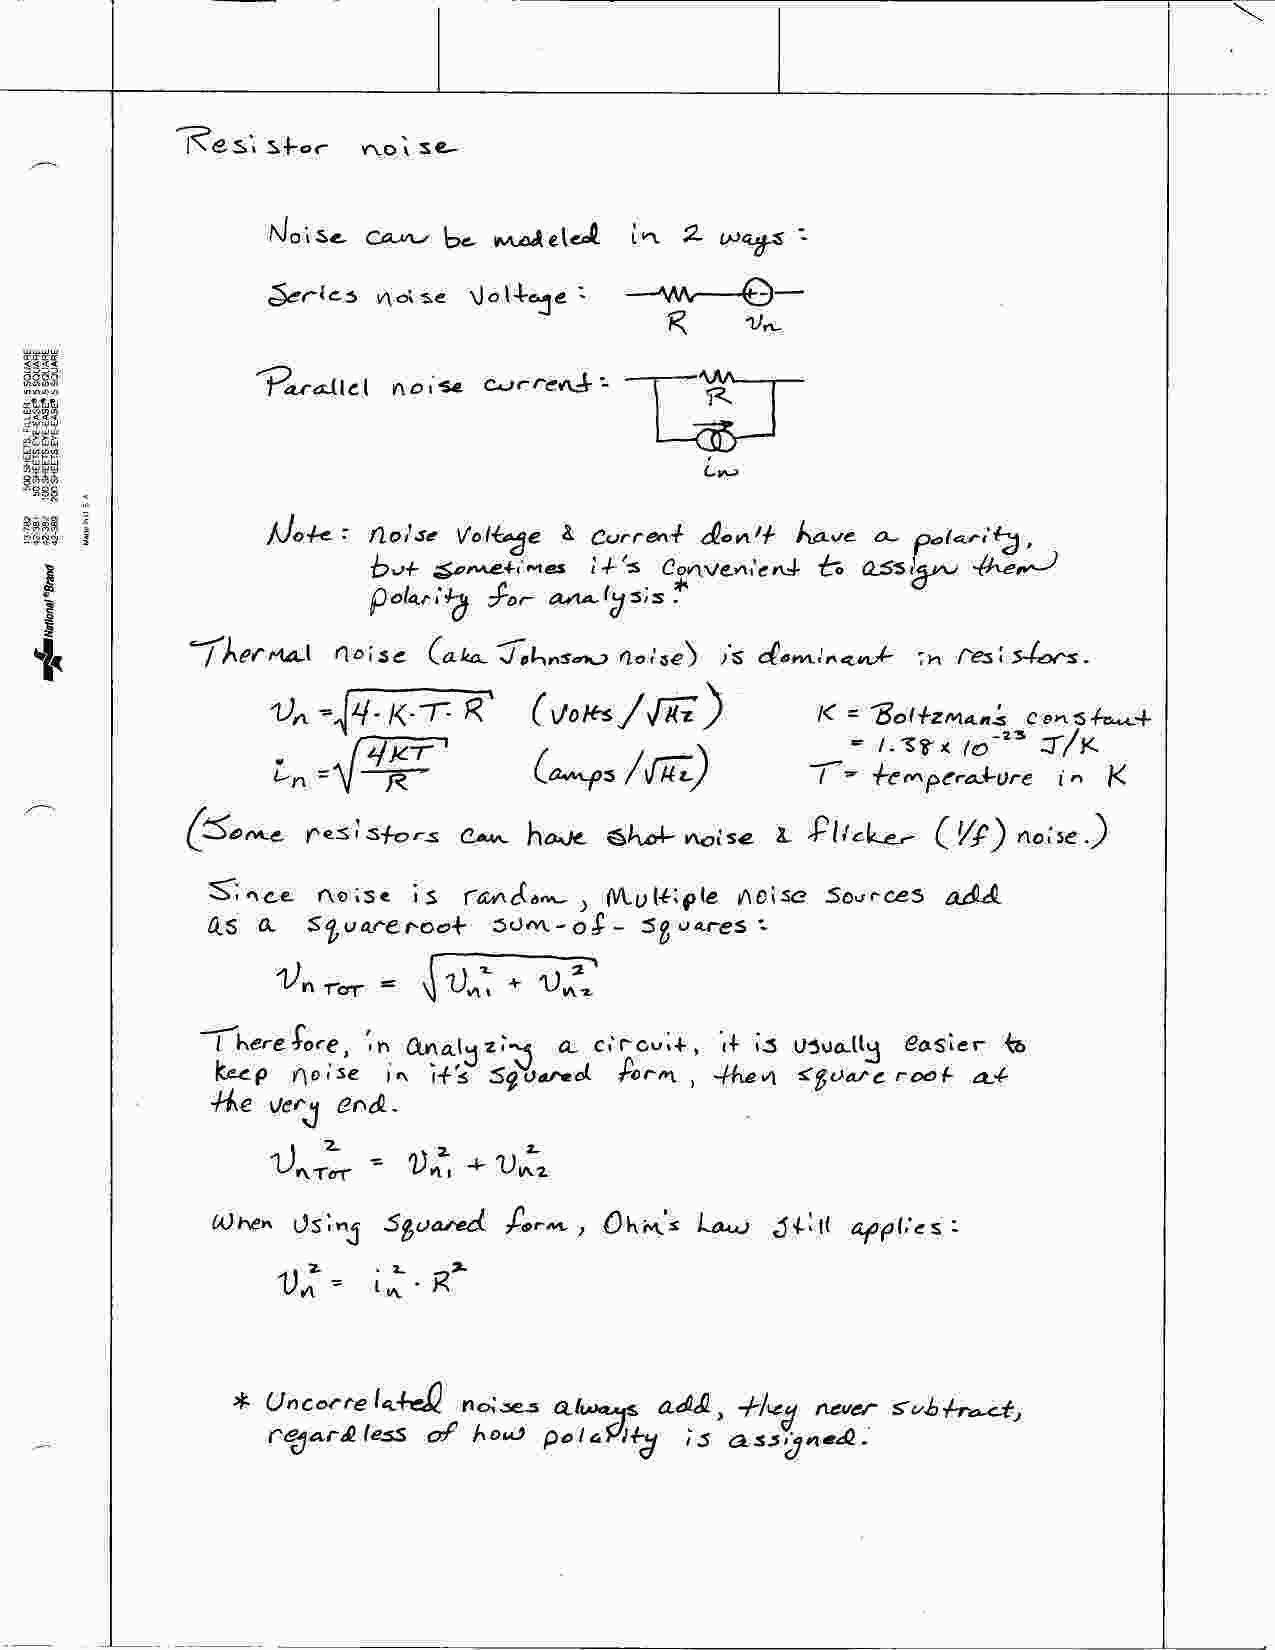 Resistor noise
Noise can be modeled in 2 ways:
Series noise voltage:
R vn
Parallel noise current:
R
in
Note: noise voltage & current don't have a polarity,
but sometimes it's convenient to assign them
polarity for analysis.*
Thermal noise (aka Johnson noise) is dominant in resistors.
vn = √4·K·T·R (Volts/√Hz) K = Boltzman's constant
= 1.38 x 10^-23 J/K
in = √4KT/R (amps/√Hz) T = temperature in K
(Some resistors can have shot noise & flicker (1/f) noise.)
Since noise is random, multiple noise sources add
as a squareroot sum-of-squares:
vn TOT = √vn1² + vn2²
Therefore, in analyzing a circuit, it is usually easier to
keep noise in it's squared form, then square root at
the very end.
vn TOT² = vn1² + vn2²
When using squared form, Ohm's Law still applies:
vn² = in² · R²
* Uncorrelated noises always add, they never subtract,
regardless of how polarity is assigned.
13-782 500 SHEETS, FILLER, 5 SQUARE
42-381 50 SHEETS EYE-EASE® 5 SQUARE
42-382 100 SHEETS EYE-EASE® 5 SQUARE
42-389 200 SHEETS EYE-EASE® 5 SQUARE
National®Brand